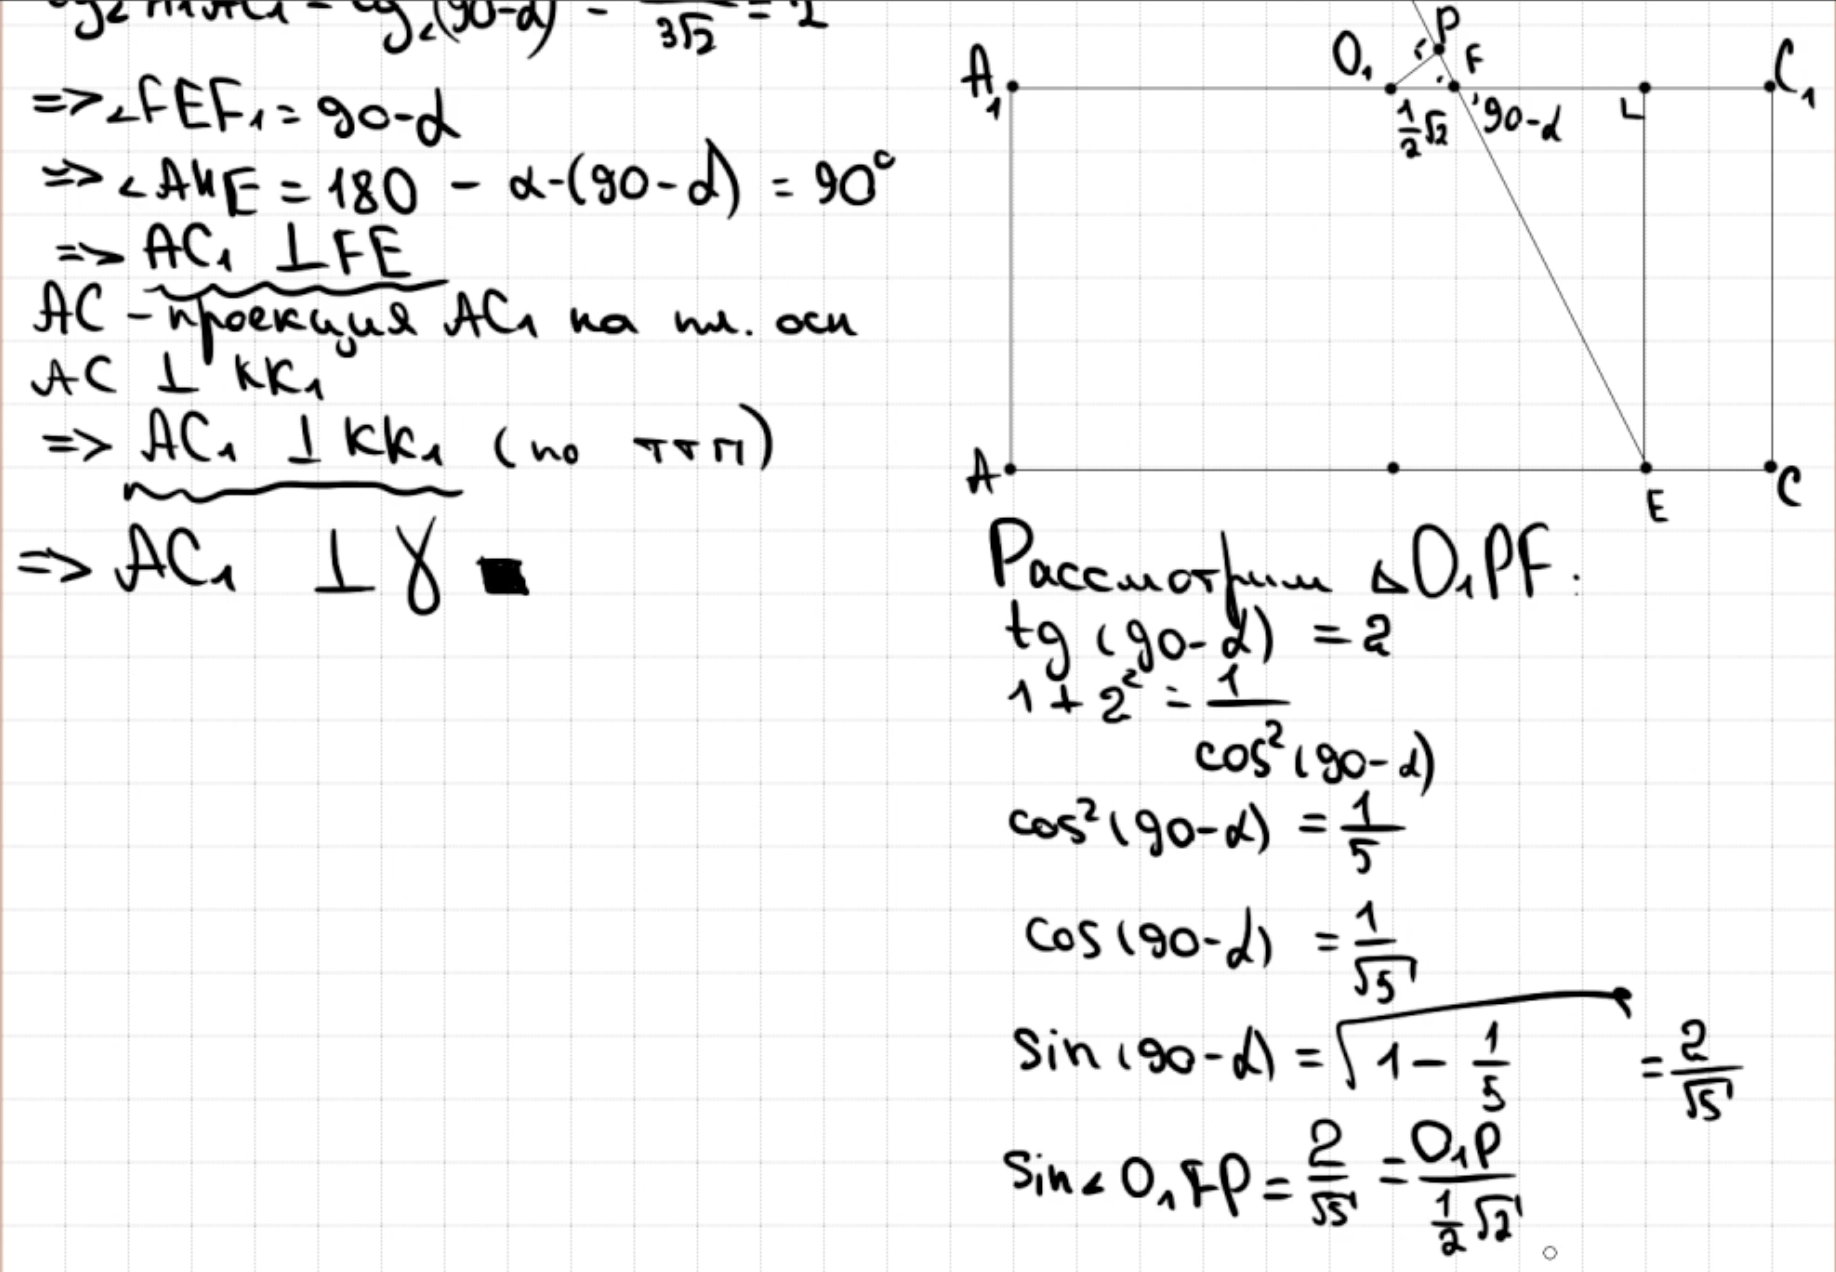 => ∠FEF₁ = 90-α
=> ∠AHE = 180 - α-(90-α) = 90°
=> AC₁ ⊥ FE
AC - проекция AC₁ на пл. осн
AC ⊥ KK₁
=> AC₁ ⊥ KK₁ (по ттп)
=> AC₁ ⊥ γ ■
P
O₁
F
A₁
C₁
½√2
90-α
L
A
E
C
Рассмотрим ΔO₁PF:
tg (90-α) = 2
1 + 2² = 1/cos²(90-α)
cos²(90-α) = 1/5
cos(90-α) = 1/√5
sin(90-α) = √(1 - 1/5) = 2/√5
sin∠O₁FP = 2/√5 = O₁P/(½√2)